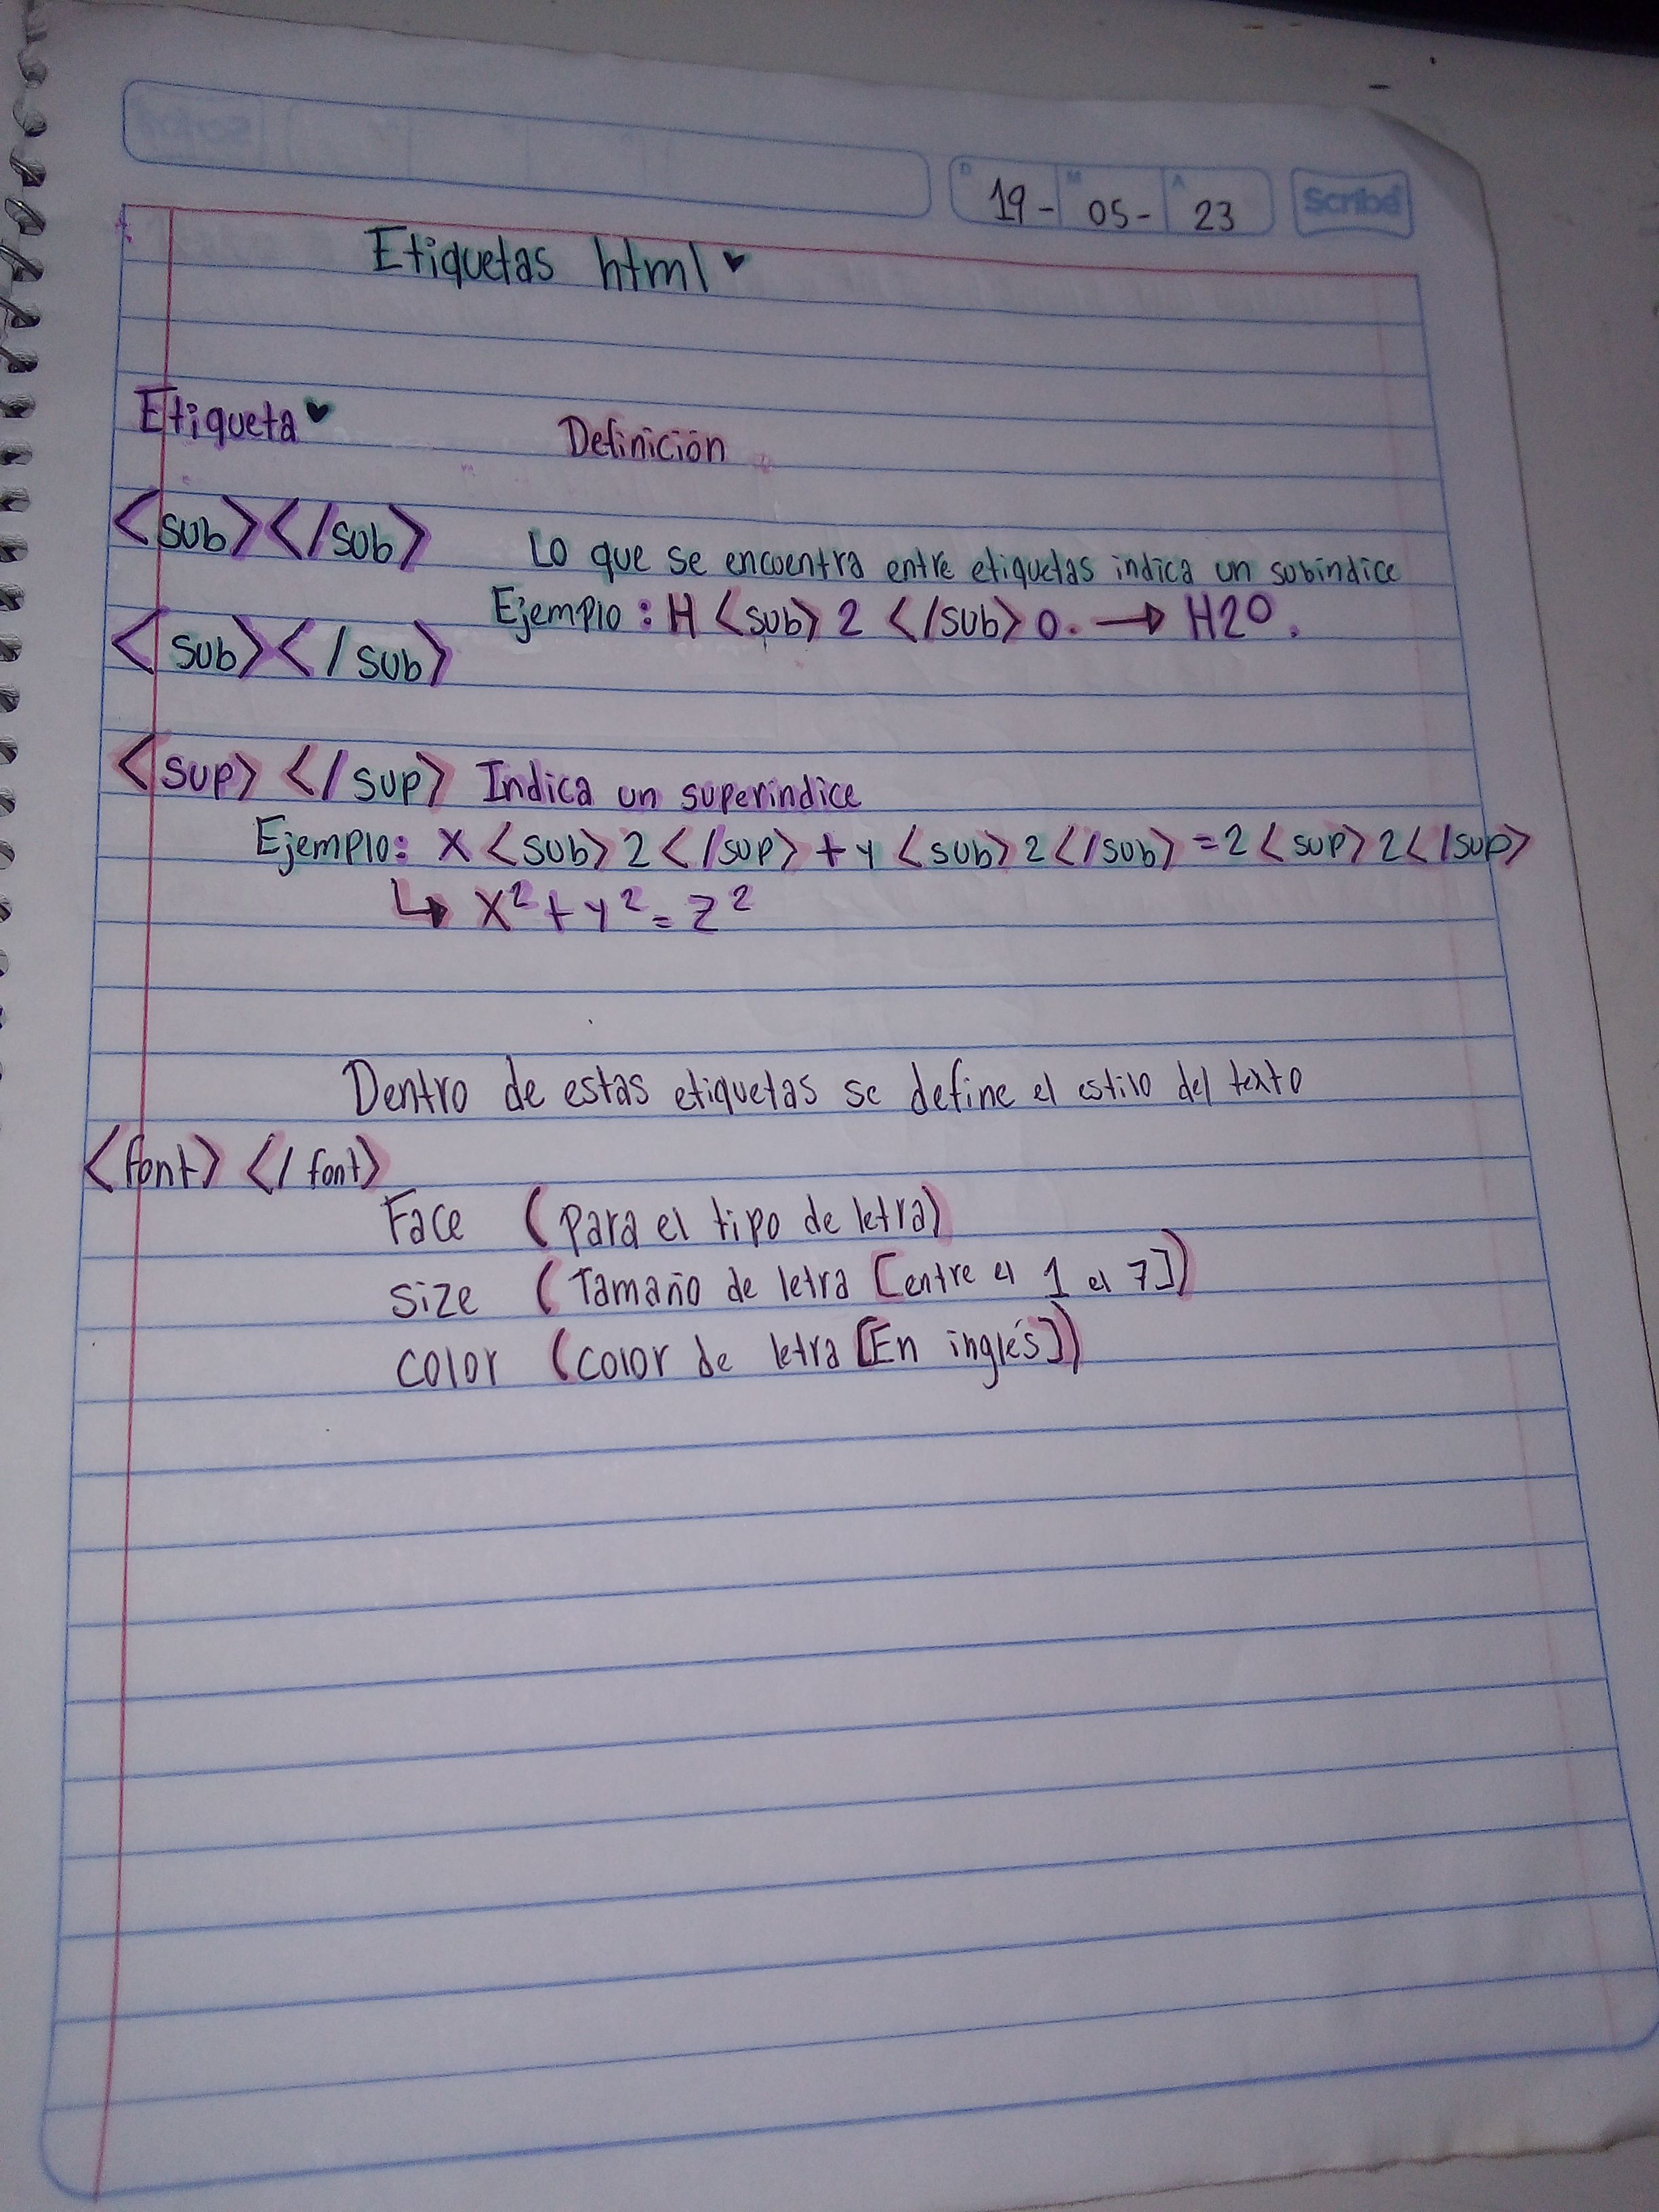 D 19 - M 05 - A 23 Scribe
Etiquetas html
Etiqueta Definición
<sub></sub> Lo que se encuentra entre etiquetas indica un subíndice
Ejemplo: H <sub> 2 </sub> O. → H2O.
<sub></sub>
<sup> </sup> Indica un superíndice
Ejemplo: X <sub> 2 </sup> + y <sub> 2 </sub> = 2 <sup> 2 </sup>
↳ X² + y² = z²
Dentro de estas etiquetas se define el estilo del texto
<font> </font>
Face (Para el tipo de letra)
size (Tamaño de letra [entre el 1 el 7])
color (color de letra [En inglés])